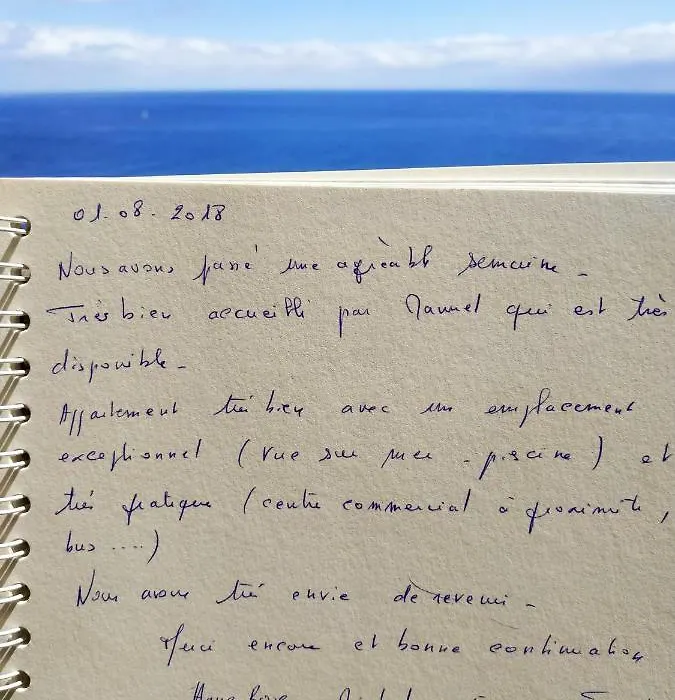 01.08.2018
Nous avons passé une agréable semaine -
Très bien accueilli par Manuel qui est très
disponible -
Appartement très bien avec un emplacement
exceptionnel (vue sur mer - piscine) et
très pratique (centre commercial à proximité,
bus ....)
Nous avons très envie de revenir -
Merci encore et bonne continuation